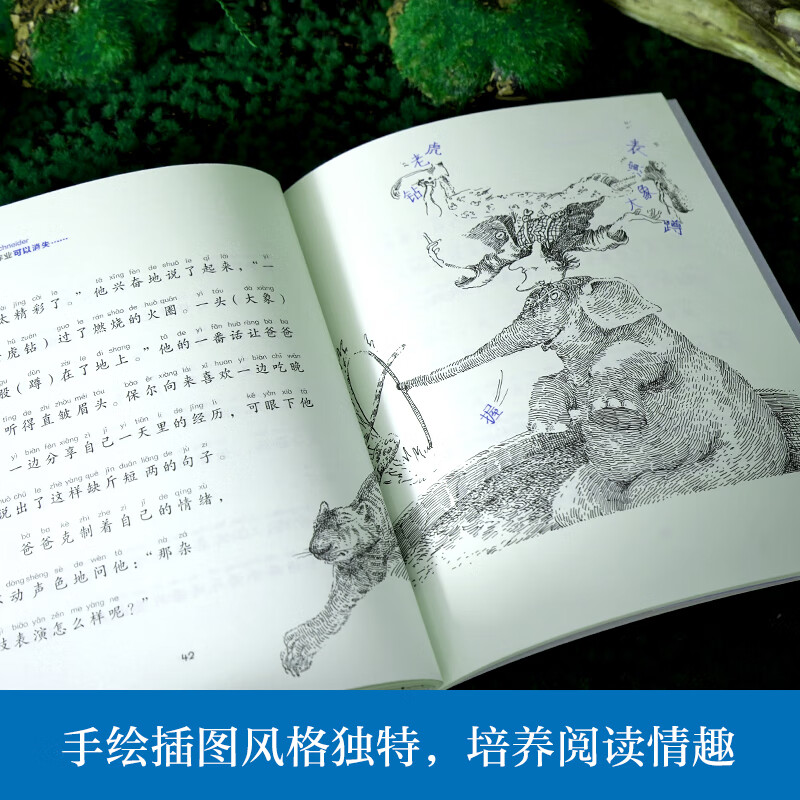 chneider
业可以消失……
jīng cǎi le tā xīng fèn de shuō le qǐ lái yì
太精彩了。”他兴奋地说了起来，“一
hǔ zuān guo le rán shāo de huǒ quān yì tóu dà xiàng
虎钻）过了燃烧的火圈。一头（大象）
gu dūn zài le dì shang tā de yì fān huà ràng bà ba
股（蹲）在了地上。”他的一番话让爸爸
tīng de zhí zhòu méi tóu bǎo ěr xiàng lái xǐ huan yì biān chī wǎn
听得直皱眉头。保尔向来喜欢一边吃晚
yì biān fēn xiǎng zì jǐ yì tiān li de jīng lì kě yǎn xià tā
一边分享自己一天里的经历，可眼下他
shuō chū le zhè yàng quē jīn duǎn liǎng de jù zi
说出了这样缺斤短两的句子。
bà ba kè zhì zhe zì jǐ de qíng xù
爸爸克制着自己的情绪，
dòng shēng sè de wèn tā nà zá
动声色地问他：“那杂
jì biǎo yǎn zěn me yàng ne
技表演怎么样呢？”
42
老虎
钻
表
大象
蹲
握
手绘插图风格独特，培养阅读情趣